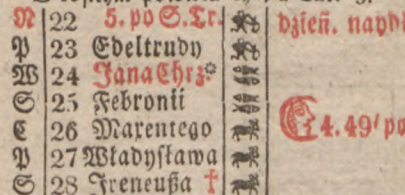 N 22 5. po S. Tr. dzień. naydł
P 23 Edeltrudy
W 24 Jana Chrz
S 25 Febronii
C 26 Maxentego 4. 49' po
P 27 Władysława
S 28 Ireneußa †